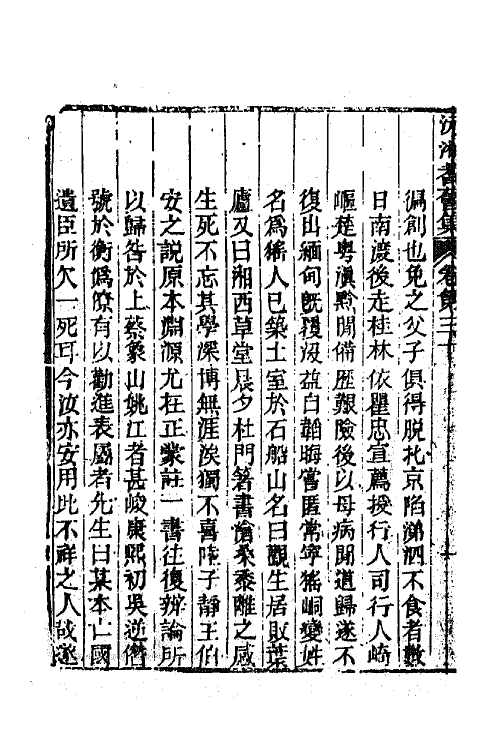 沅湘耆舊集卷第三十
徧創也免之父子俱得脫北京陷涕泗不食者數
日南渡後走桂林依瞿忠宣薦授行人司行人崎
嶇楚粵滇黔間備歷艱險後以母病聞道歸遂不
復出緬甸旣覆沒益自韜晦嘗匿常寧猺峒變姓
名爲猺人已築土室於石船山名曰觀生居敗葉
廬又曰湘西草堂晨夕杜門著書愴桑黍離之感
生死不忘其學深博無涯涘獨不喜陸子靜王伯
安之說原本淵源尤在正蒙註一書往復辨論所
以歸咎於上蔡象山姚江者甚峻康熙初吳逆僭
號於衡僞僚有以勸進表屬者先生曰某本亡國
遺臣所欠一死耳今汝亦安用此不祥之人哉遂